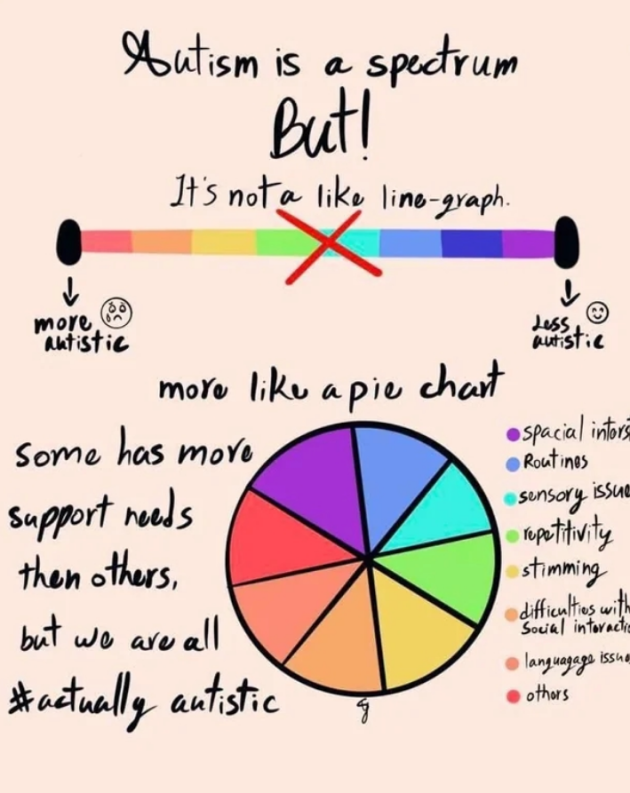 Autism is a spectrum
But!
It's not a like line-graph.
more autistic
Less autistic
more like a pie chart
some has more
support needs
then others,
but we are all
#actually autistic
spacial inters
Routines
sensory issue
repetitivity
stimming
difficulties with
Social interactio
languagage issue
others